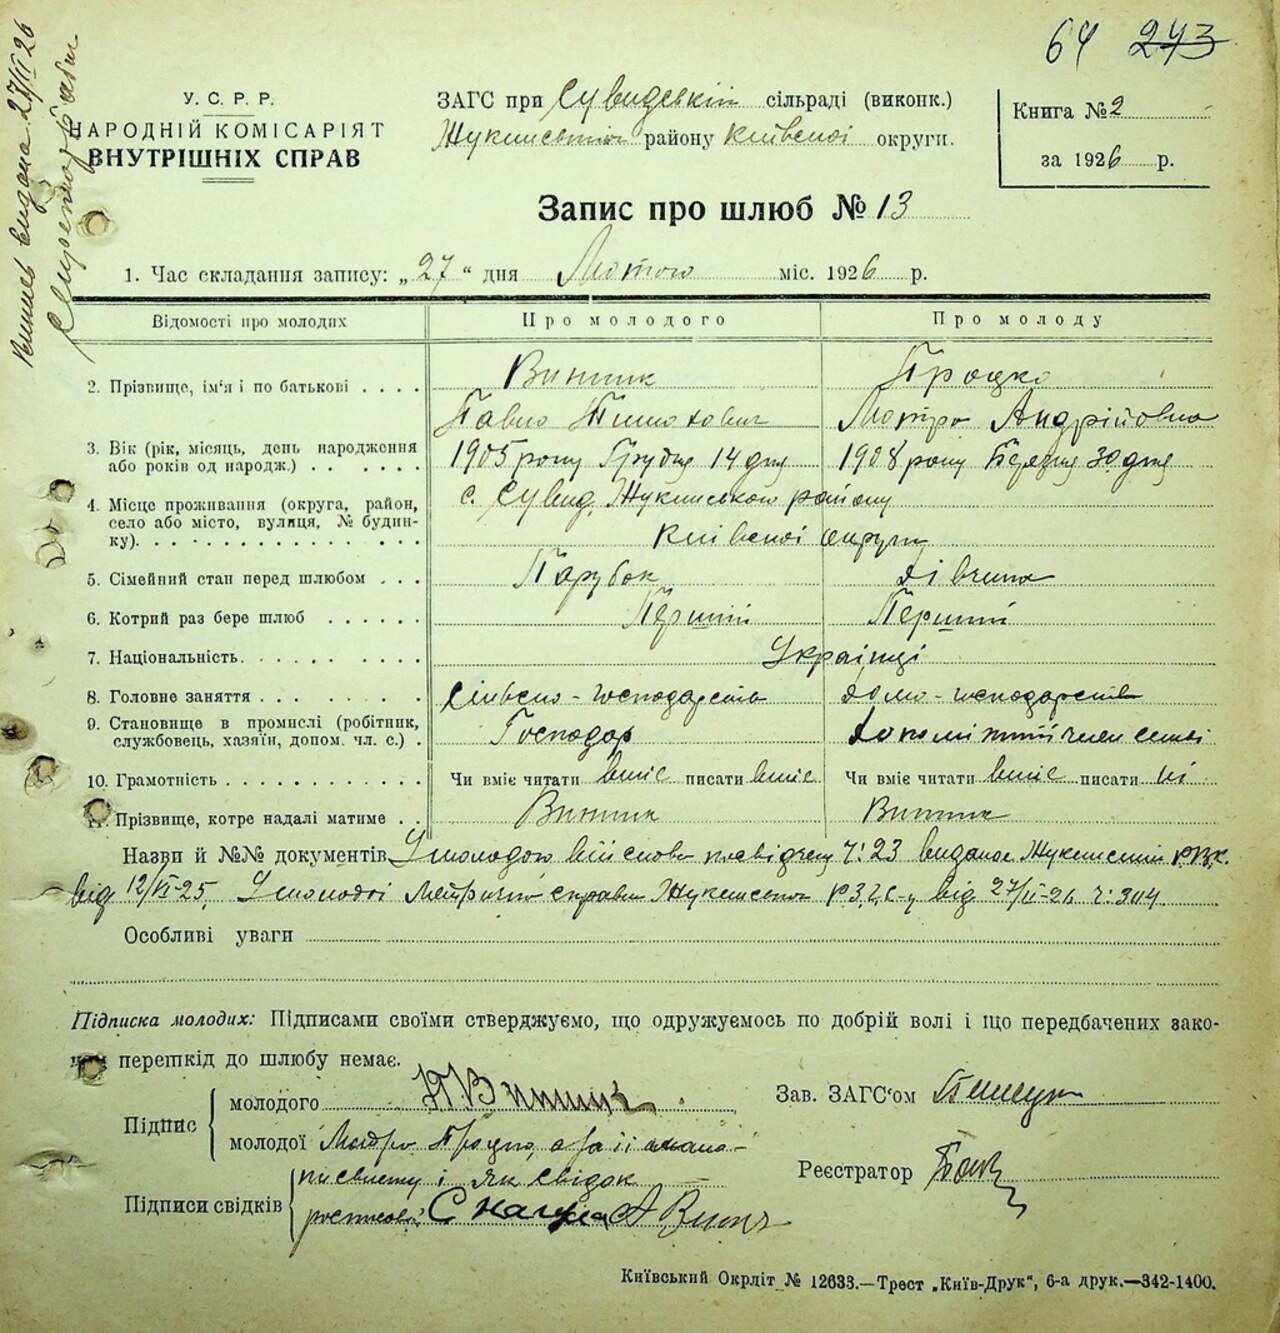 64 243
Випись видана 27/II 26
У. С. Р. Р.
НАРОДНІЙ КОМІСАРІЯТ
ВНУТРІШНІХ СПРАВ
ЗАГС при Сувидській сільраді (виконк.)
Жукинського району Київської округи.
Книга № 2
за 1926 р.
Запис про шлюб № 13
1. Час складання запису: „27“ дня Лютого міс. 1926 р.
Відомості про молодих Про молодого Про молоду
2. Прізвище, ім'я і по батькові . . . . Винник Процко
Павло Тимохович Мотря Андрійовна
3. Вік (рік, місяць, день народження
або років од народж.) . . . . . . 1905 року Грудня 14 дня 1908 року Березня 30 дня
4. Місце проживання (округа, район,
село або місто, вулиця, № будин-
ку). . . . . . . . . . . . . . . с. Сувид, Жукинського району
Київської округи
5. Сімейний стан перед шлюбом . . . Парубок дівчина
6. Котрий раз бере шлюб . . . . . . Перший Перший
7. Національність. . . . . . . . . . Українці
8. Головне заняття . . . . . . . . сільсько-господарство домо-господарство
9. Становище в промислі (робітник,
службовець, хазяїн, допом. чл. с.) . Господар допоміжний член семї
10. Грамотність . . . . . . . . . . . Чи вміє читати вміє писати вміє Чи вміє читати вміє писати ні
11. Прізвище, котре надалі матиме . . Винник Винник
Назви й №№ документів У молодого військове посвідчен ч: 23 видане Жукинський Р.В.К.
від 12/VI-25, У молодої Метричній справки Жукинського Р.З.А.С-у від 27/II-26 ч: 304
Особливі уваги
Підписка молодих: Підписами своїми стверджуємо, що одружуємось по добрій волі і що передбачених зако-
ном перешкід до шлюбу немає.
Підпис
молодого П Винник
молодої Мотря Процко, а за її
Підписи свідків
писменну і як свідок
Зав. ЗАГС'ом
Реєстратор
Київський Окрліт № 12633.—Трест „Київ-Друк“, 6-а друк.—342-1400.